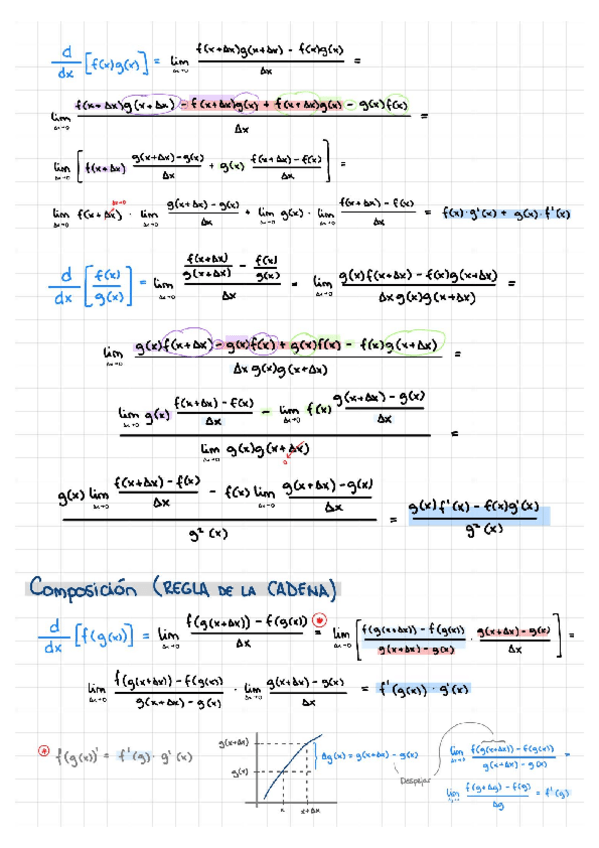 d/dx [f(x)g(x)] = lim Δx→0 (f(x+Δx)g(x+Δx) - f(x)g(x))/Δx =
lim Δx→0 (f(x+Δx)g(x+Δx) - f(x+Δx)g(x) + f(x+Δx)g(x) - g(x)f(x))/Δx =
lim Δx→0 [f(x+Δx) (g(x+Δx)-g(x))/Δx + g(x) (f(x+Δx)-f(x))/Δx] =
Δx→0
lim Δx→0 f(x+Δx) · lim Δx→0 (g(x+Δx)-g(x))/Δx + lim Δx→0 g(x) · lim Δx→0 (f(x+Δx)-f(x))/Δx = f(x)·g'(x) + g(x)·f'(x)
d/dx [f(x)/g(x)] = lim Δx→0 (f(x+Δx)/g(x+Δx) - f(x)/g(x))/Δx = lim Δx→0 (g(x)f(x+Δx) - f(x)g(x+Δx))/(Δx g(x)g(x+Δx)) =
lim Δx→0 (g(x)f(x+Δx) - g(x)f(x) + g(x)f(x) - f(x)g(x+Δx))/(Δx g(x)g(x+Δx)) =
(lim Δx→0 g(x) (f(x+Δx)-f(x))/Δx - lim Δx→0 f(x) (g(x+Δx)-g(x))/Δx)/(lim Δx→0 g(x)g(x+Δx)) =
0
(g(x) lim Δx→0 (f(x+Δx)-f(x))/Δx - f(x) lim Δx→0 (g(x+Δx)-g(x))/Δx)/(g²(x)) = (g(x)f'(x) - f(x)g'(x))/(g²(x))
Composición (REGLA DE LA CADENA)
d/dx [f(g(x))] = lim Δx→0 (f(g(x+Δx)) - f(g(x)))/Δx =* lim Δx→0 [(f(g(x+Δx)) - f(g(x)))/(g(x+Δx)-g(x)) · (g(x+Δx)-g(x))/Δx] =
lim Δx→0 (f(g(x+Δx)) - f(g(x)))/(g(x+Δx)-g(x)) · lim Δx→0 (g(x+Δx)-g(x))/Δx = f'(g(x))·g'(x)
* f(g(x))' = f'(g)·g'(x)
g(x+Δx)
g(x)
x x+Δx
Δg(x) = g(x+Δx) - g(x)
Despejar
lim Δx→0 (f(g(x+Δx)) - f(g(x)))/(g(x+Δx)-g(x)) =
lim (f(g+Δg) - f(g))/Δg = f'(g)